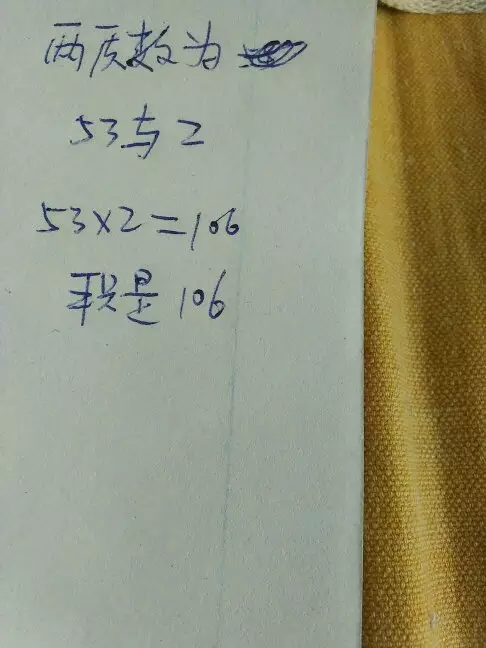 两质数为
53与2
53×2=106
积是106